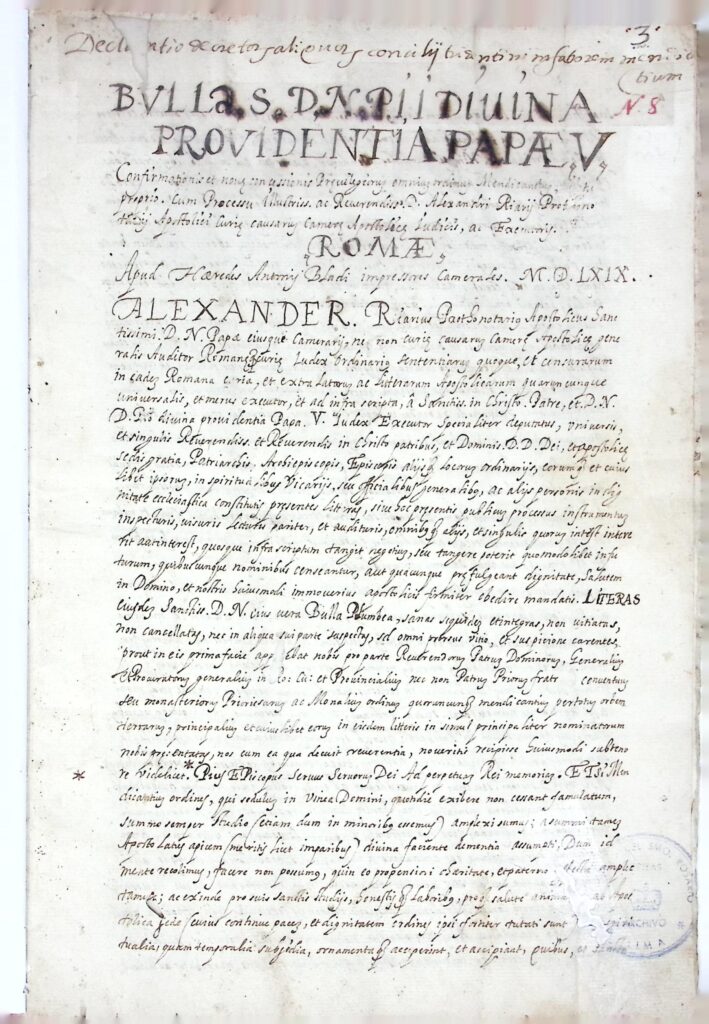 3
Declaratio decretor aliquor concilij tridentini in favorem mendic
tium
N. 8
BVLLA. S. D. N. PII DIUINA
PROVIDENTIA PAPÆ V
Confirmationis et noue concessionis Preuilegiorum omnium ordinum Mendicantium,
proprio. Cum Processu Illustriss. ac Reverendiss. D. Alexandri Riarij Protono
tarij Apostolici Curie causarum Camere Apostolice Iudicis, ac Executoris.
ROMÆ
Apud Hæredes Antonij Bladi impressores Camerales. M. D. LXIX.
ALEXANDER. Riarius Prothonotarius Apostolicus Sanc
tissimi D. N. Papæ eiusque Camerarij, nec non curie causarum Camere Apostolice gene
ralis Auditor Romaneque curie Iudex Ordinarius sententiarum quoque, et censurarum
in eadem Romana curia, et extra latarum ac litterarum Apostolicarum quarumcunque
universalis, et merus executor, et ad infra scripta, â Sanctiss. in Christo Patre, et D. N.
D. Pio divina providentia Papa. V. Iudex Executor Specialiter deputatus, vniversis,
et singulis Reverendiss. et Reverendis in Christo patribus, et Dominis. D. D. Dei, et apostolice
sedis gratia, Patriarchis, Archiepiscopis, Episcopis alijsq locorum ordinarijs, eorumq et cuius
libet ipsorum, in spiritualibus Vicarijs, seu officialibus generalibus, ac alijs personis in dig
nitate ecclesiastica constitutis presentes litteras, sive hoc presentis publicum processus instrumentum
inspecturis, visuris lecturis pariter, et audituris, omnibusq alijs, et singulis quorum interest intere
rit aut interest, quosque infra scriptum tangit negotium, seu tangere poterit quomodolibet infu
turum, quibuscunque nominibus censeantur, aut quacunque prefulgeant dignitate, salutem
in Domino, et nostris huiusmodi immoverius apostolicis firmiter obedire mandatis. LITERAS
eiusdem Sanctiss. D. N. eius vera Bulla Plumbea, sanas siquidem et integras, non vitiatas,
non cancellatas, nec in aliqua sui parte suspectas, sed omni prorsus vitio, et suspicione carentes,
prout in eis prima facie app ebat nobis pro parte Reverendorum Patrum Dominorum, Generalium
et Procuratorum generalium in et Provincialium nec non Patrum Priorum fratr conventuum
seu monasteriorum Priorissarum ac Monialium ordinum quorumcunq mendicantium per totum orbem
terrarum, principalium et cuiuslibet eorum in eisdem litteris in simul principaliter nominatorum
nobis presentatas, nos cum ea qua decuit reverentia, noveritis recipisse huiusmodi subteno
* re videlicet. * Pius EPiscopus Servus Servorum Dei Ad perpetuam Rei memoriam. ETsi Men
dicantium ordines, qui sedulum in Vinea Domini, quotidie exibere non cessant famulatum,
summo semper studio (etiam dum in minoribus essemus) amplexi sumus; assummi tamen
Apostolatus apicem (meritis licet imparibus) divina faciente clementia assumpti, Dum id
mente recolimus, facere non possumus, quin eo propensiori charitate, et paterno affectu ample
tamur; ac exinde pro suis sanctis studijs, honestisq laboribus, proq salute anima ab Apos
tolica sede (cuius continue paces, et dignitatem ordines ipsi fortiter tutati sunt) spiri
tualia, quam temporalia subsidia, ornamentaq acceperint, et accipiant, quibus, et
ARCHIVO
LIMA